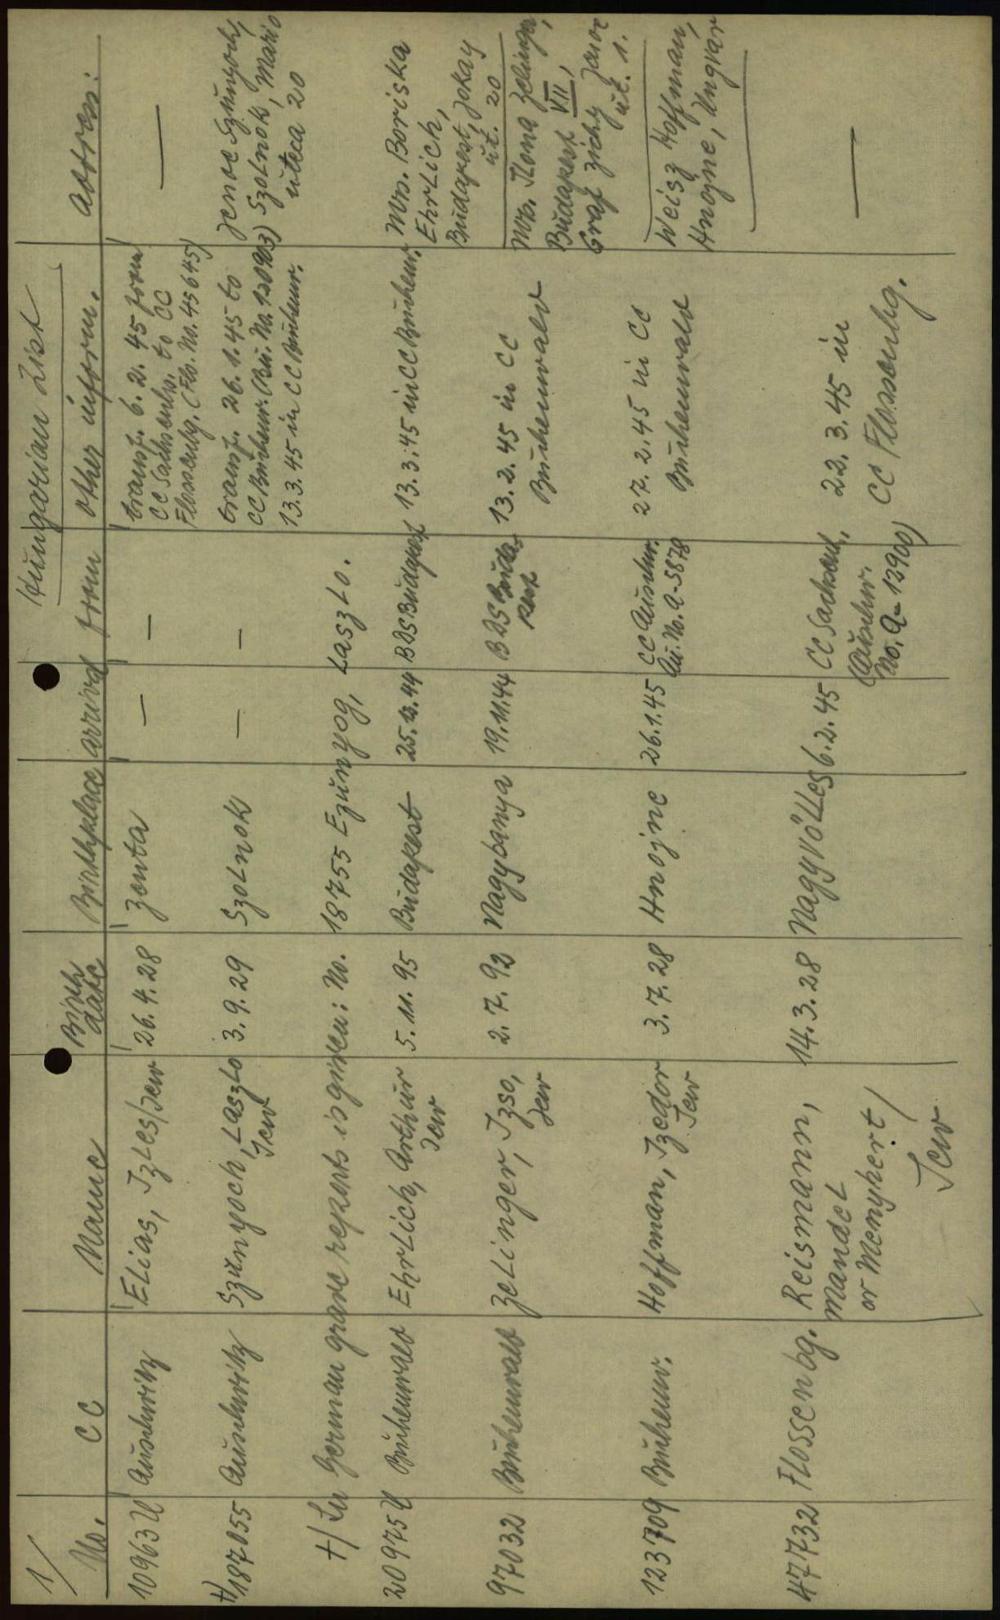 1/
Hungarian List
No. CC Name Birth date Birthplace arrival from other inform. address:
10963 U Auschwitz Elias, Izles/Jew 26.4.28 Zenta — — transf. 6. 2. 45 from
CC Sachsenhs. to CC
Flossenbg. (Flo. N. 45645)
—
+/187055 Auschwitz Szünyoch, Laszlo 3.9.29 Szolnok — — transf. 26.1.45 to
Jew
CC Buchenw. (Bu. No. 120903)
13.3.45 in CC Buchenw.
Jenoe Szünyoch,
Szolnok, Mario
uteca 20
+/ In German grave reports is given: No. 18755 Ezünyog, Laszlo.
20975 U Buchenwald Ehrlich, Arthur 5.11.95 Budapest 25.12.44 BDS Budapest 13.3.45 in CC Buchenw.
Jew
Mrs. Boriska
Ehrlich,
Budapest, Jokay
ut. 20
97032 Buchenwald Zelinger, Izso, 2.7.92 Nagybanya 19.11.44 BDS Budapest 13.2.45 in CC
Jew
Buchenwald
Mrs. Ilona Zelinger,
Budapest VII,
Graf Zichy Jenoe
ut. 1.
123709 Buchenw. Hoffman, Izedor 3.7.28 Hnojne 26.1.45 CC Auschw. 27.2.45 in CC
Jew
Au. No. A-5878
Buchenwald
Weisz Hoffman,
Hnojne, Ungvar
47732 Flossenbg. Reismann, 14.3.28 Nagyvölles 6.2.45 CC Sachsenh. 22.3.45 in
Mandel
or Menyhert/
Jew
(Auschw.
No. A-12900)
CC Flossenbg.
—